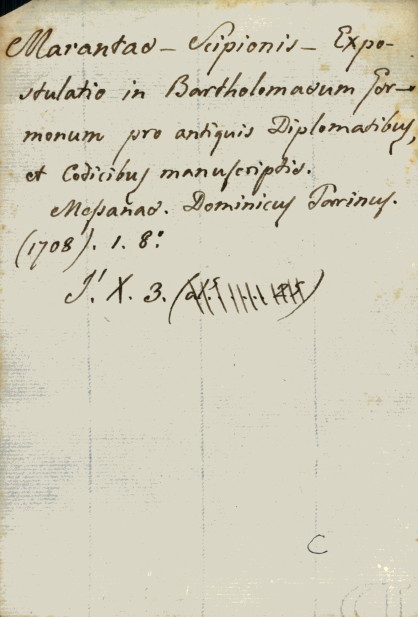 Marantae - Scipionis - Expo-
stulatio in Bartholomaeum Ger-
monum pro antiquis Diplomatibus,
et Codicibus manuscriptis.
Messanae. Dominicus Tarrinus.
(1708). 1. 8º
J! X. 3.
C